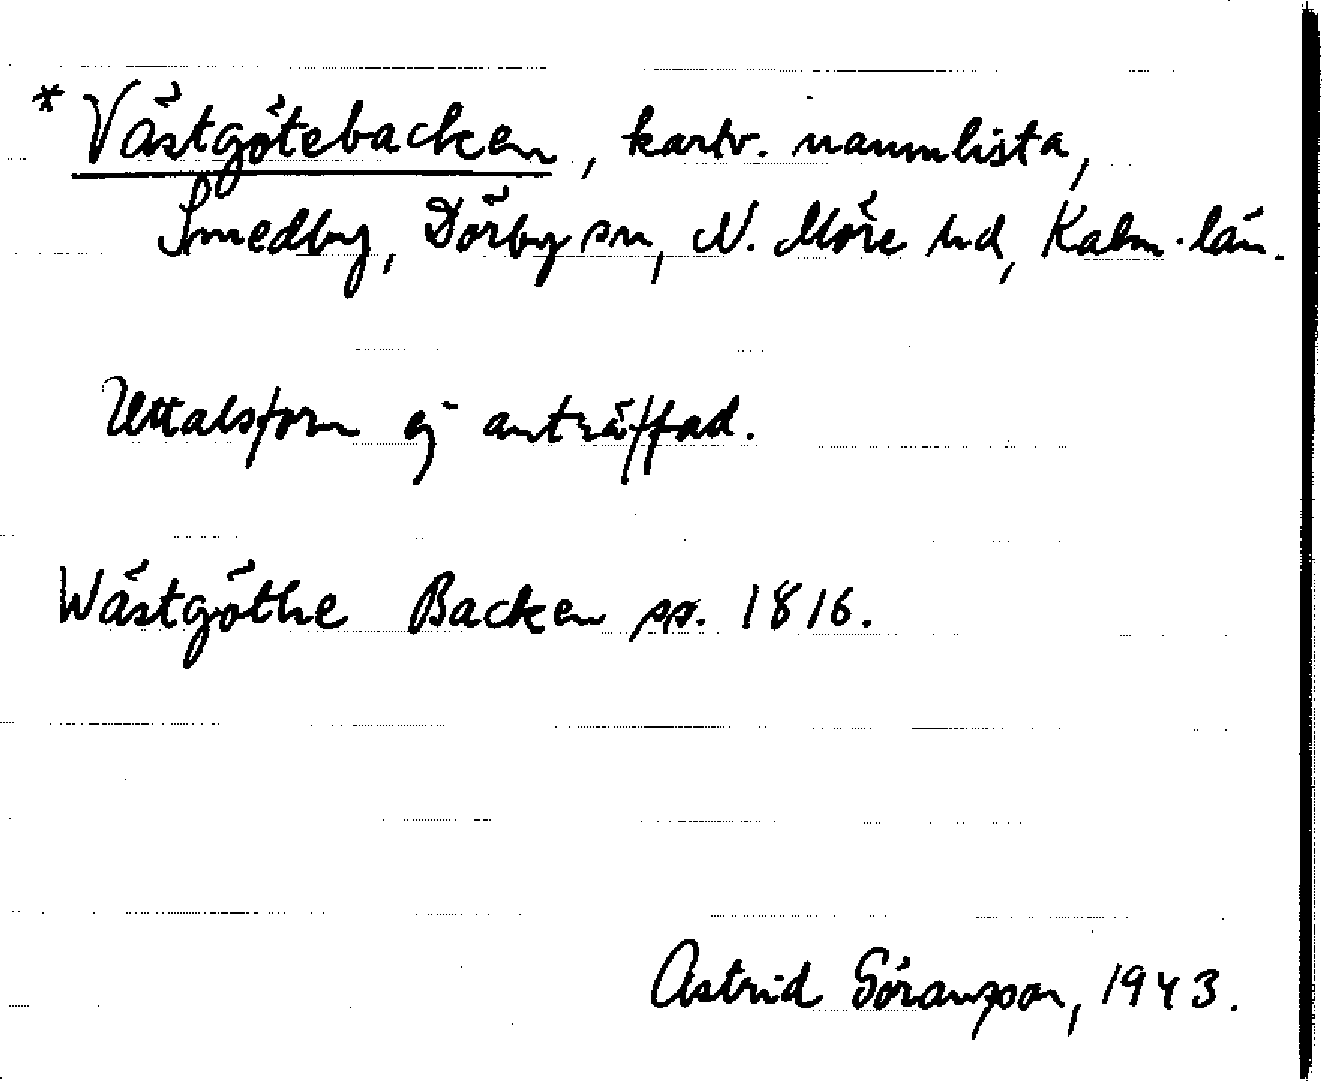 * Västgötebacken, kartv. namnlista,
Smedby, Dörby sn, N. Möre hd, Kalm. län.
Uttalsform ej anträffad.
Wästgöthe Backen sp. 1816.
Astrid Göransson, 1943.